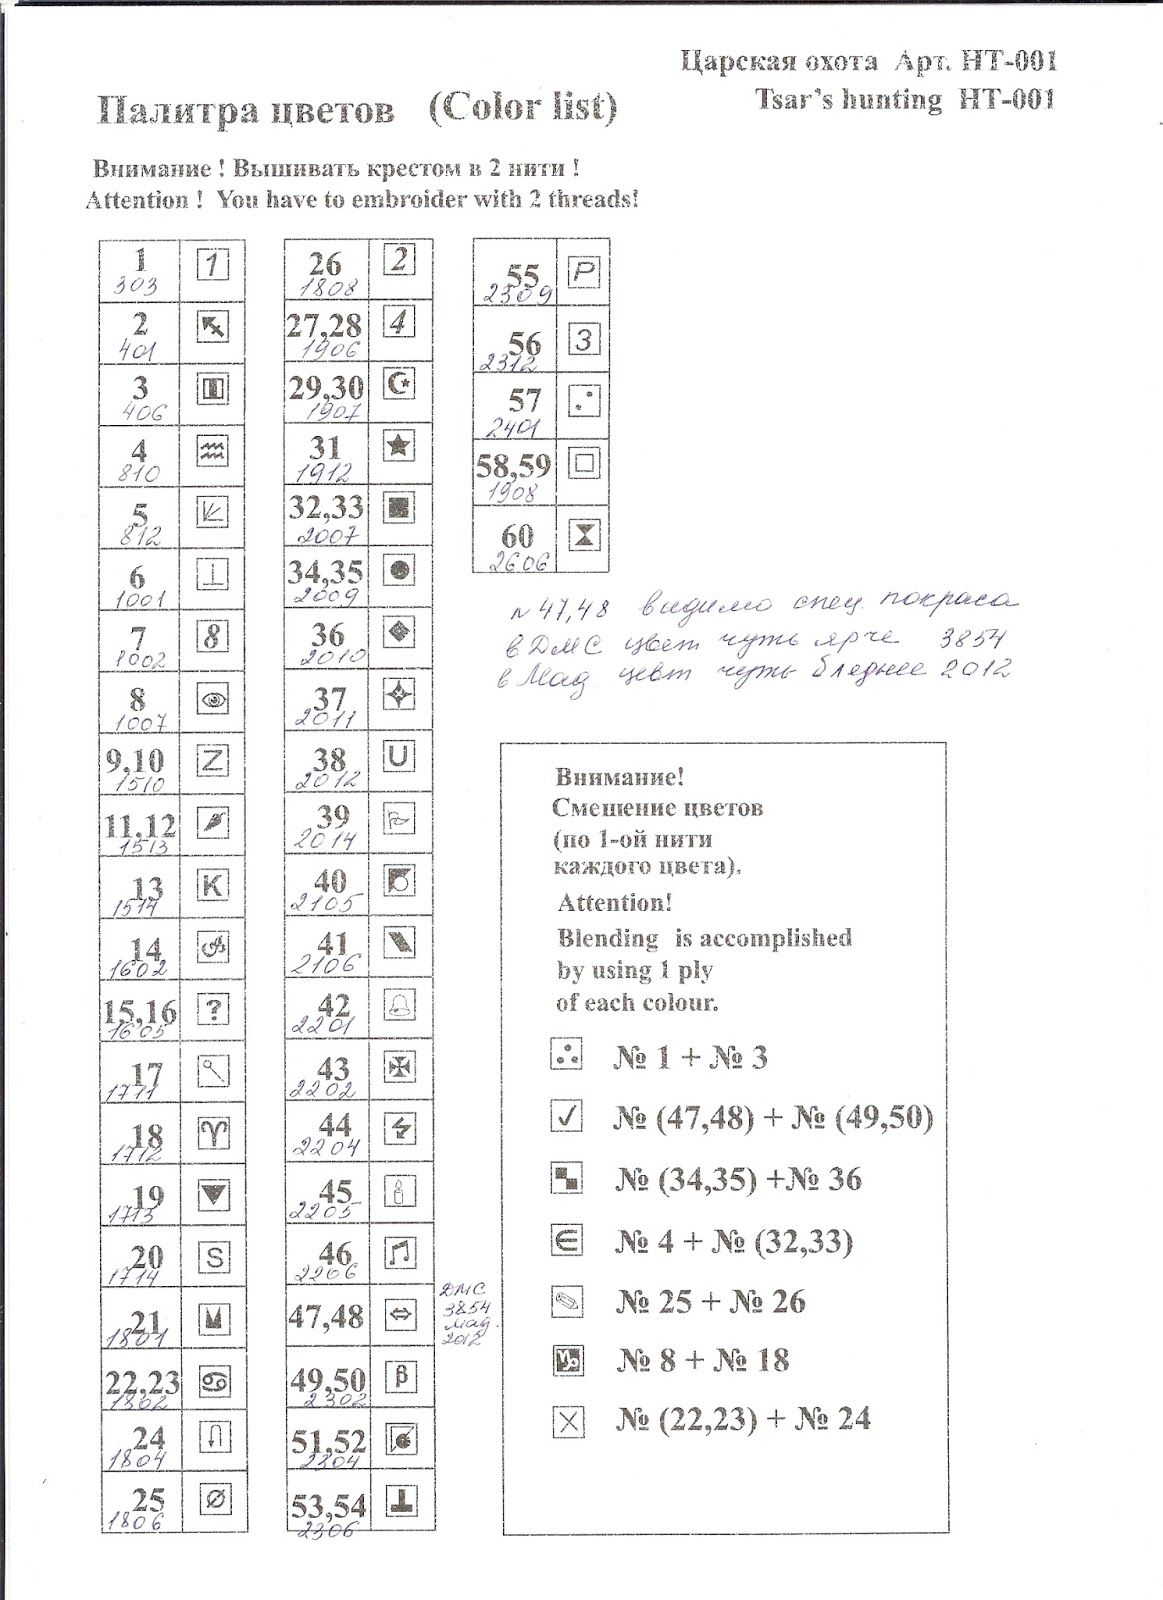 Царская охота Арт. НТ-001
Tsar's hunting НТ-001
Палитра цветов (Color list)
Внимание ! Вышивать крестом в 2 нити !
Attention ! You have to embroider with 2 threads!
1 1
303
2
401
3
406
4
810
5
812
6
1001
7 8
1002
8
1007
9,10 Z
1510
11,12
1513
13 K
1514
14
1602
15,16 ?
1605
17
1711
18
1712
19
1713
20 S
1714
21
1801
22,23
1802
24
1804
25
1806
26 2
1808
27,28 4
1906
29,30
1907
31
1912
32,33
2007
34,35
2009
36
2010
37
2011
38 U
2012
39
2014
40
2105
41
2106
42
2201
43
2202
44
2204
45
2205
46
2206
47,48
ДМС
3854
Мад.
2012
49,50 β
2302
51,52
2304
53,54
2306
55 P
2309
56 3
2312
57
2401
58,59
1908
60
2606
№ 47,48 видимо спец. покраса
в ДМС цвет чуть ярче 3854
в Мад. цвет чуть бледнее 2012
Внимание!
Смешение цветов
(по 1-ой нити
каждого цвета).
Attention!
Blending is accomplished
by using 1 ply
of each colour.
№ 1 + № 3
№ (47,48) + № (49,50)
№ (34,35) +№ 36
№ 4 + № (32,33)
№ 25 + № 26
№ 8 + № 18
№ (22,23) + № 24